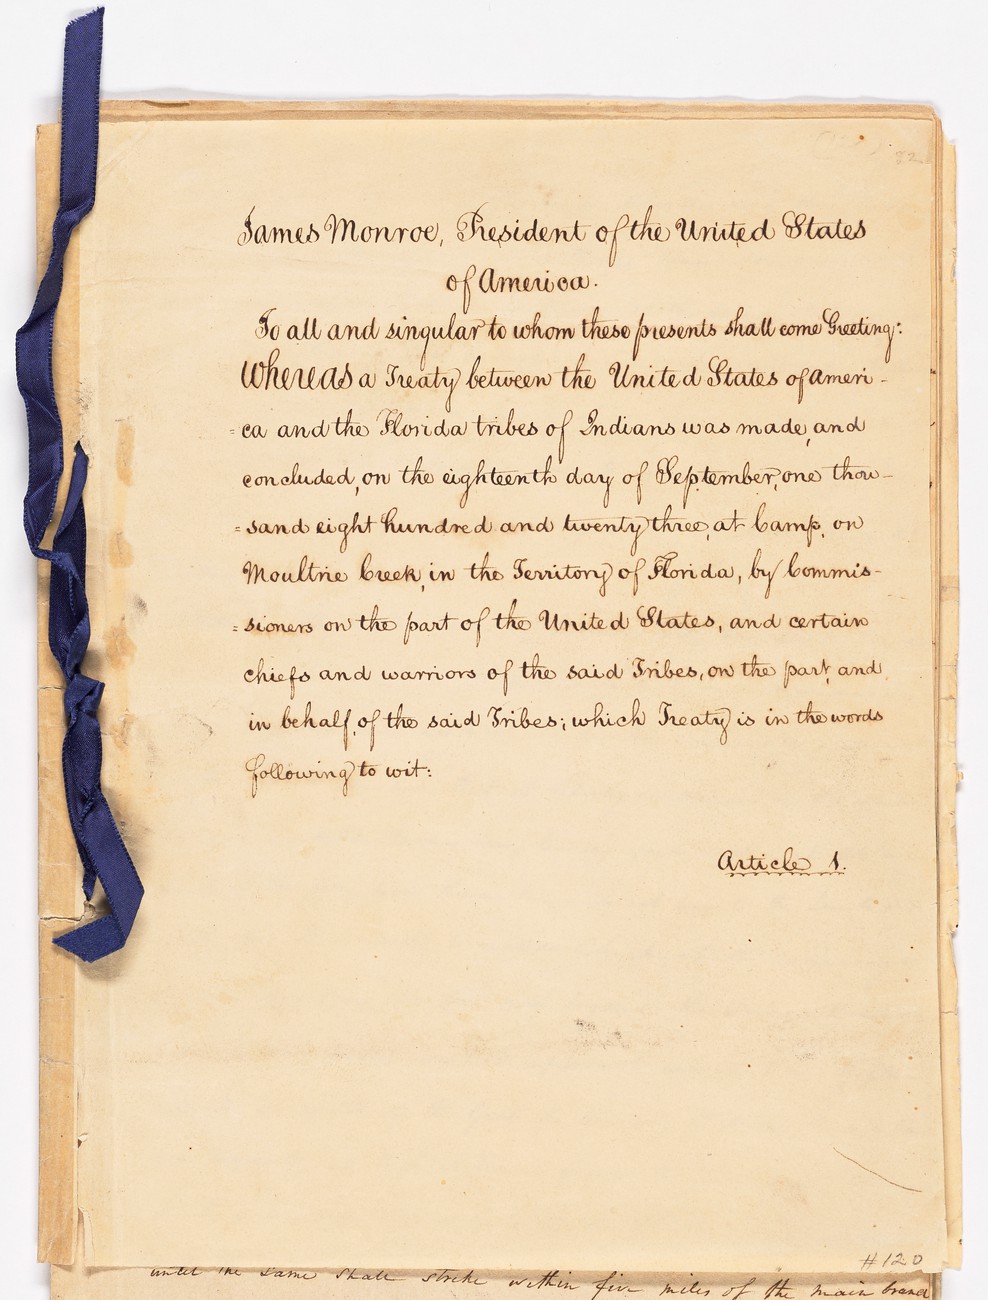 22
James Monroe, President of the United States
of America.
To all and singular to whom these presents shall come Greeting:
Whereas a Treaty between the United States of Ameri-
=ca and the Florida tribes of Indians was made, and
concluded, on the eighteenth day of September, one thou-
=sand eight hundred and twenty three, at Camp, on
Moultrie Creek, in the Territory of Florida, by Commis-
=sioners on the part of the United States, and certain
chiefs and warriors of the said Tribes, on the part, and
in behalf, of the said Tribes; which Treaty is in the words
following to wit:
Article 1.
#120
until the same shall strike within five miles of the main branch